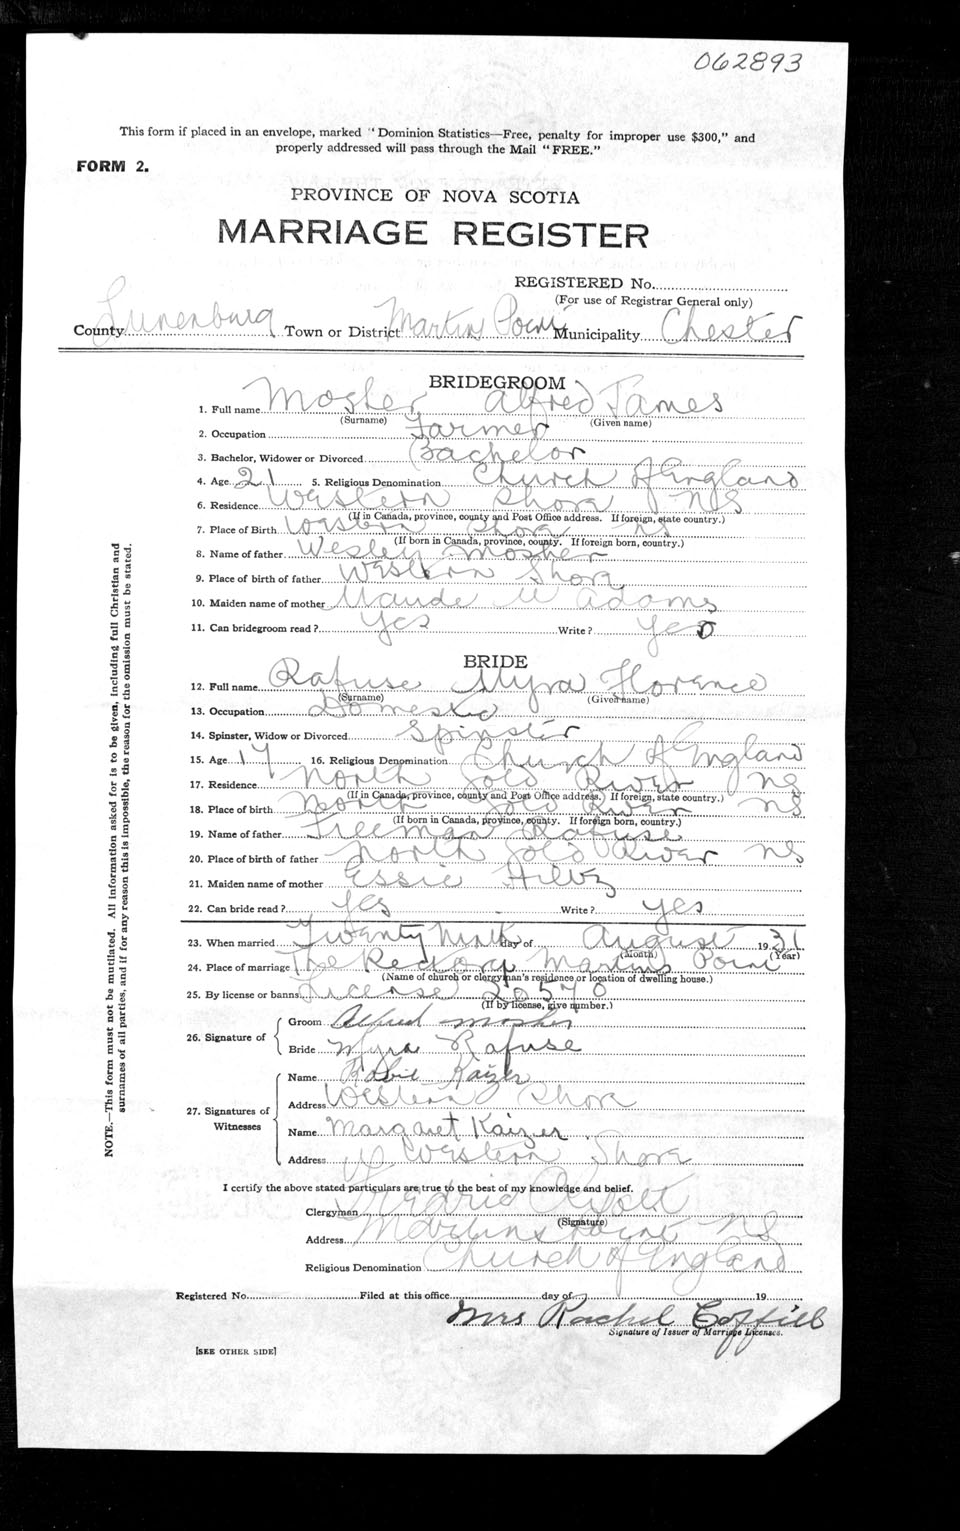 062893
This form if placed in an envelope, marked "Dominion Statistics—Free, penalty for improper use $300," and
properly addressed will pass through the Mail "FREE."
FORM 2.
PROVINCE OF NOVA SCOTIA
MARRIAGE REGISTER
REGISTERED No.
(For use of Registrar General only)
County Lunenburg Town or District Martins Point Municipality Chester
BRIDEGROOM
1. Full name Mosher Alfred James
(Surname) (Given name)
2. Occupation Farmer
3. Bachelor, Widower or Divorced Bachelor
4. Age 21 5. Religious Denomination Church of England
6. Residence Western Shore NS
(If in Canada, province, county and Post Office address. If foreign, state country.)
7. Place of Birth Western Shore NS
(If born in Canada, province, county. If foreign born, country.)
8. Name of father Wesley Mosher
9. Place of birth of father Western Shore
10. Maiden name of mother Maude Adams
11. Can bridegroom read? Yes Write? Yes
BRIDE
12. Full name Rafuse Myra Florence
(Surname) (Given name)
13. Occupation Domestic
14. Spinster, Widow or Divorced Spinster
15. Age 17 16. Religious Denomination Church of England
17. Residence North Gold River NS
(If in Canada, province, county and Post Office address. If foreign, state country.)
18. Place of birth North Gold River NS
(If born in Canada, province, county. If foreign born, country.)
19. Name of father Freeman Rafuse
20. Place of birth of father North Gold River NS
21. Maiden name of mother Essie Hiltz
22. Can bride read? Yes Write? Yes
23. When married Twenty Ninth day of August 1931
(Month) (Year)
24. Place of marriage The Rectory Martins Point
(Name of church or clergyman's residence or location of dwelling house.)
25. By license or banns License 20570
(If by license, give number.)
26. Signature of
Groom Alfred Mosher
Bride Myra Rafuse
27. Signatures of Witnesses
Name Kaizer
Address Western Shore
Name Margaret Kaizer
Address Western Shore
I certify the above stated particulars are true to the best of my knowledge and belief.
Clergyman
(Signature)
Address Martins Point NS
Religious Denomination Church of England
Registered No. Filed at this office day of 19
Mrs Rachel
Signature of Issuer of Marriage Licenses.
[SEE OTHER SIDE]
NOTE.—This form must not be mutilated. All information asked for is to be given, including full Christian and
surnames of all parties, and if for any reason this is impossible, the reason for the omission must be stated.